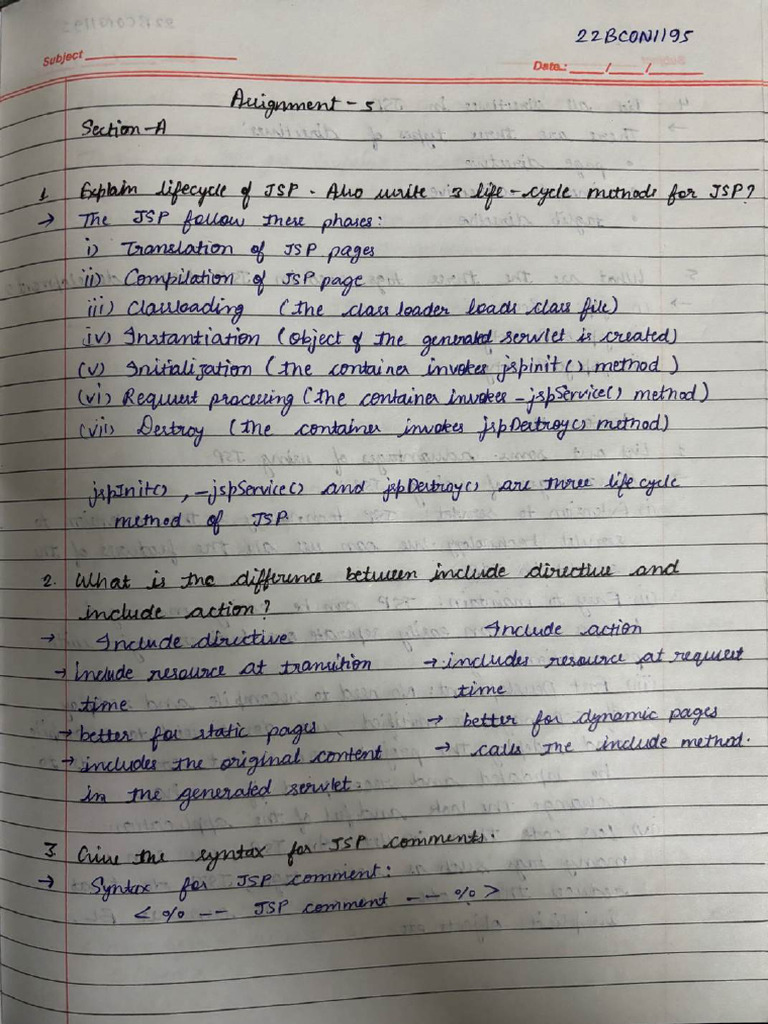 22BCON1195
Subject
Date.: __/__/__
Assignment - 5
Section-A
1. Explain lifecycle of JSP. Also write 3 life-cycle methods for JSP?
→ The JSP follow these phases:
i) Translation of JSP pages
ii) Compilation of JSP page
iii) Classloading (the class loader loads class file)
iv) Instantiation (object of the generated servlet is created)
(v) Initialization (the container invokes jspinit() method)
(vi) Request processing (the container invokes _jspService() method)
(vii) Destroy (the container invokes jspDestroy() method)
jspInit(), _jspService() and jspDestroy() are three life cycle
method of JSP.
2. What is the difference between include directive and
include action?
→ Include directive Include action
→ Include resource at transition → includes resource at request
time time
→ better for static pages → better for dynamic pages
→ includes the original content → calls the include method.
in the generated servlet.
3 Give the syntax for JSP comments.
→ Syntax for JSP comment:
<%-- JSP comment --%>